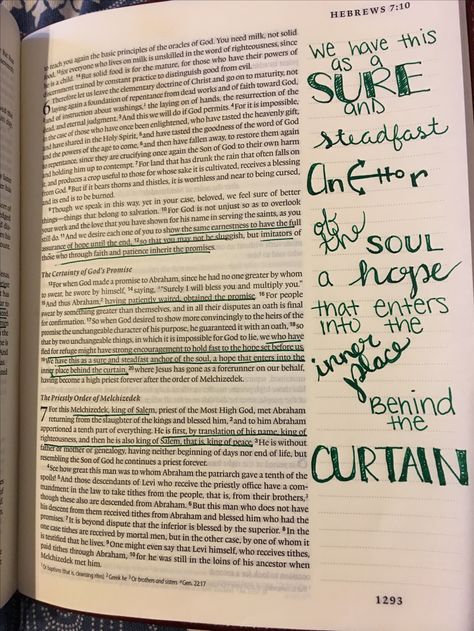 HEBREWS 7:10
to teach you again the basic principles of the oracles of God. You need milk, not solid
food, 13 for everyone who lives on milk is unskilled in the word of righteousness, since
he is a child. 14 But solid food is for the mature, for those who have their powers of
discernment trained by constant practice to distinguish good from evil.
6 Therefore let us leave the elementary doctrine of Christ and go on to maturity, not
laying again a foundation of repentance from dead works and of faith toward God,
2 and of instruction about washings, 1 the laying on of hands, the resurrection of the
dead, and eternal judgment. 3 And this we will do if God permits. 4 For it is impossible,
in the case of those who have once been enlightened, who have tasted the heavenly gift,
and have shared in the Holy Spirit, 5 and have tasted the goodness of the word of God
and the powers of the age to come, 6 and then have fallen away, to restore them again
to repentance, since they are crucifying once again the Son of God to their own harm
and holding him up to contempt. 7 For land that has drunk the rain that often falls on
it, and produces a crop useful to those for whose sake it is cultivated, receives a blessing
from God. 8 But if it bears thorns and thistles, it is worthless and near to being cursed,
and its end is to be burned.
9 Though we speak in this way, yet in your case, beloved, we feel sure of better
things—things that belong to salvation. 10 For God is not unjust so as to overlook
your work and the love that you have shown for his name in serving the saints, as you
still do. 11 And we desire each one of you to show the same earnestness to have the full
assurance of hope until the end, 12 so that you may not be sluggish, but imitators of
those who through faith and patience inherit the promises.
The Certainty of God's Promise
13 For when God made a promise to Abraham, since he had no one greater by whom
to swear, he swore by himself, 14 saying, "Surely I will bless you and multiply you."
15 And thus Abraham, 2 having patiently waited, obtained the promise. 16 For people
swear by something greater than themselves, and in all their disputes an oath is final
for confirmation. 17 So when God desired to show more convincingly to the heirs of the
promise the unchangeable character of his purpose, he guaranteed it with an oath, 18 so
that by two unchangeable things, in which it is impossible for God to lie, we who have
fled for refuge might have strong encouragement to hold fast to the hope set before us.
19 We have this as a sure and steadfast anchor of the soul, a hope that enters into the
inner place behind the curtain, 20 where Jesus has gone as a forerunner on our behalf,
having become a high priest forever after the order of Melchizedek.
The Priestly Order of Melchizedek
7 For this Melchizedek, king of Salem, priest of the Most High God, met Abraham
returning from the slaughter of the kings and blessed him, 2 and to him Abraham
apportioned a tenth part of everything. He is first, by translation of his name, king of
righteousness, and then he is also king of Salem, that is, king of peace. 3 He is without
father or mother or genealogy, having neither beginning of days nor end of life, but
resembling the Son of God he continues a priest forever.
4 See how great this man was to whom Abraham the patriarch gave a tenth of the
spoils! 5 And those descendants of Levi who receive the priestly office have a com-
mandment in the law to take tithes from the people, that is, from their brothers, 3
though these also are descended from Abraham. 6 But this man who does not have
his descent from them received tithes from Abraham and blessed him who had the
promises. 7 It is beyond dispute that the inferior is blessed by the superior. 8 In the
one case tithes are received by mortal men, but in the other case, by one of whom it
is testified that he lives. 9 One might even say that Levi himself, who receives tithes,
paid tithes through Abraham, 10 for he was still in the loins of his ancestor when
Melchizedek met him.
1 Or baptisms (that is, cleansing rites) 2 Greek he 3 Or brothers and sisters 4 Gen. 22:17
We have this
as a
SURE
and
steadfast
Anchor
of
the SOUL
a hope
that enters
into the
inner
place
Behind
the
CURTAIN
1293